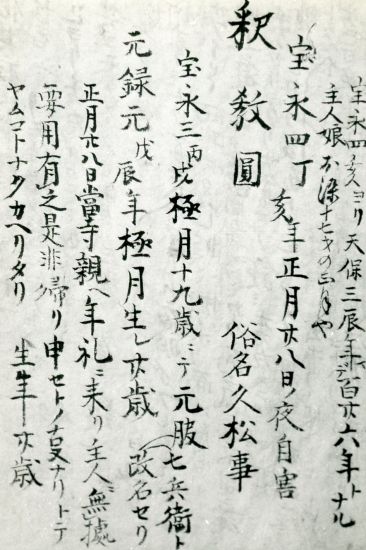 宝永四亥ヨリ天保三辰年マデ百廿六年トナル
主人娘お染十七才の正月や
宝永四丁亥年正月廿八日ノ夜自害
釈教圓　俗名久松事
宝永三丙戌極月十九歳ニテ元服七兵衛ト改名セリ
元録元戊辰年極月生レ廿歳
正月廿八日當寺親ヘ年礼ニ来リ主人ゟ無據
要用有之是非帰リ申セトノ事ナリトテ
ヤムコトナクカヘリタリ　生年廿歳